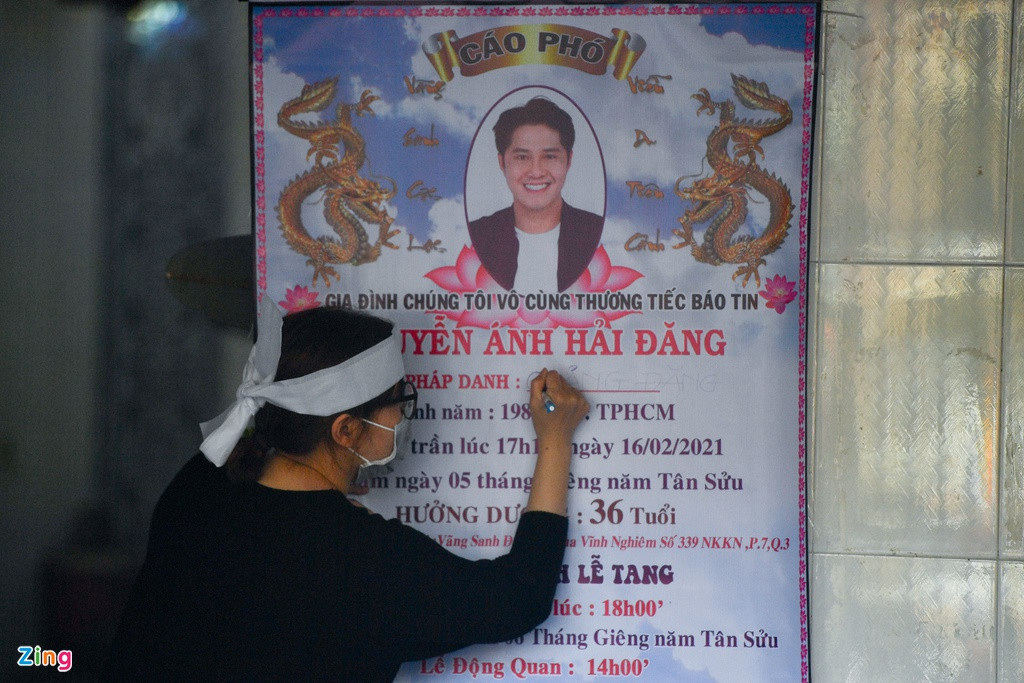 CÁO PHÓ
Vãng Sanh Cực Lạc
Viễn Du Tiên Cảnh
GIA ĐÌNH CHÚNG TÔI VÔ CÙNG THƯƠNG TIẾC BÁO TIN
UYỄN ÁNH HẢI ĐĂNG
PHÁP DANH : QUẢNG ĐĂNG
năm : 198 TPHCM
trần lúc 17h1 ngày 16/02/2021
ngày 05 tháng Giêng năm Tân Sửu
HƯỞNG DƯƠNG : 36 Tuổi
Vãng Sanh Vĩnh Nghiêm Số 339 NKKN ,P.7,Q.3
LỄ TANG
lúc : 18h00’
Tháng Giêng năm Tân Sửu
Lễ Động Quan : 14h00’
Zing